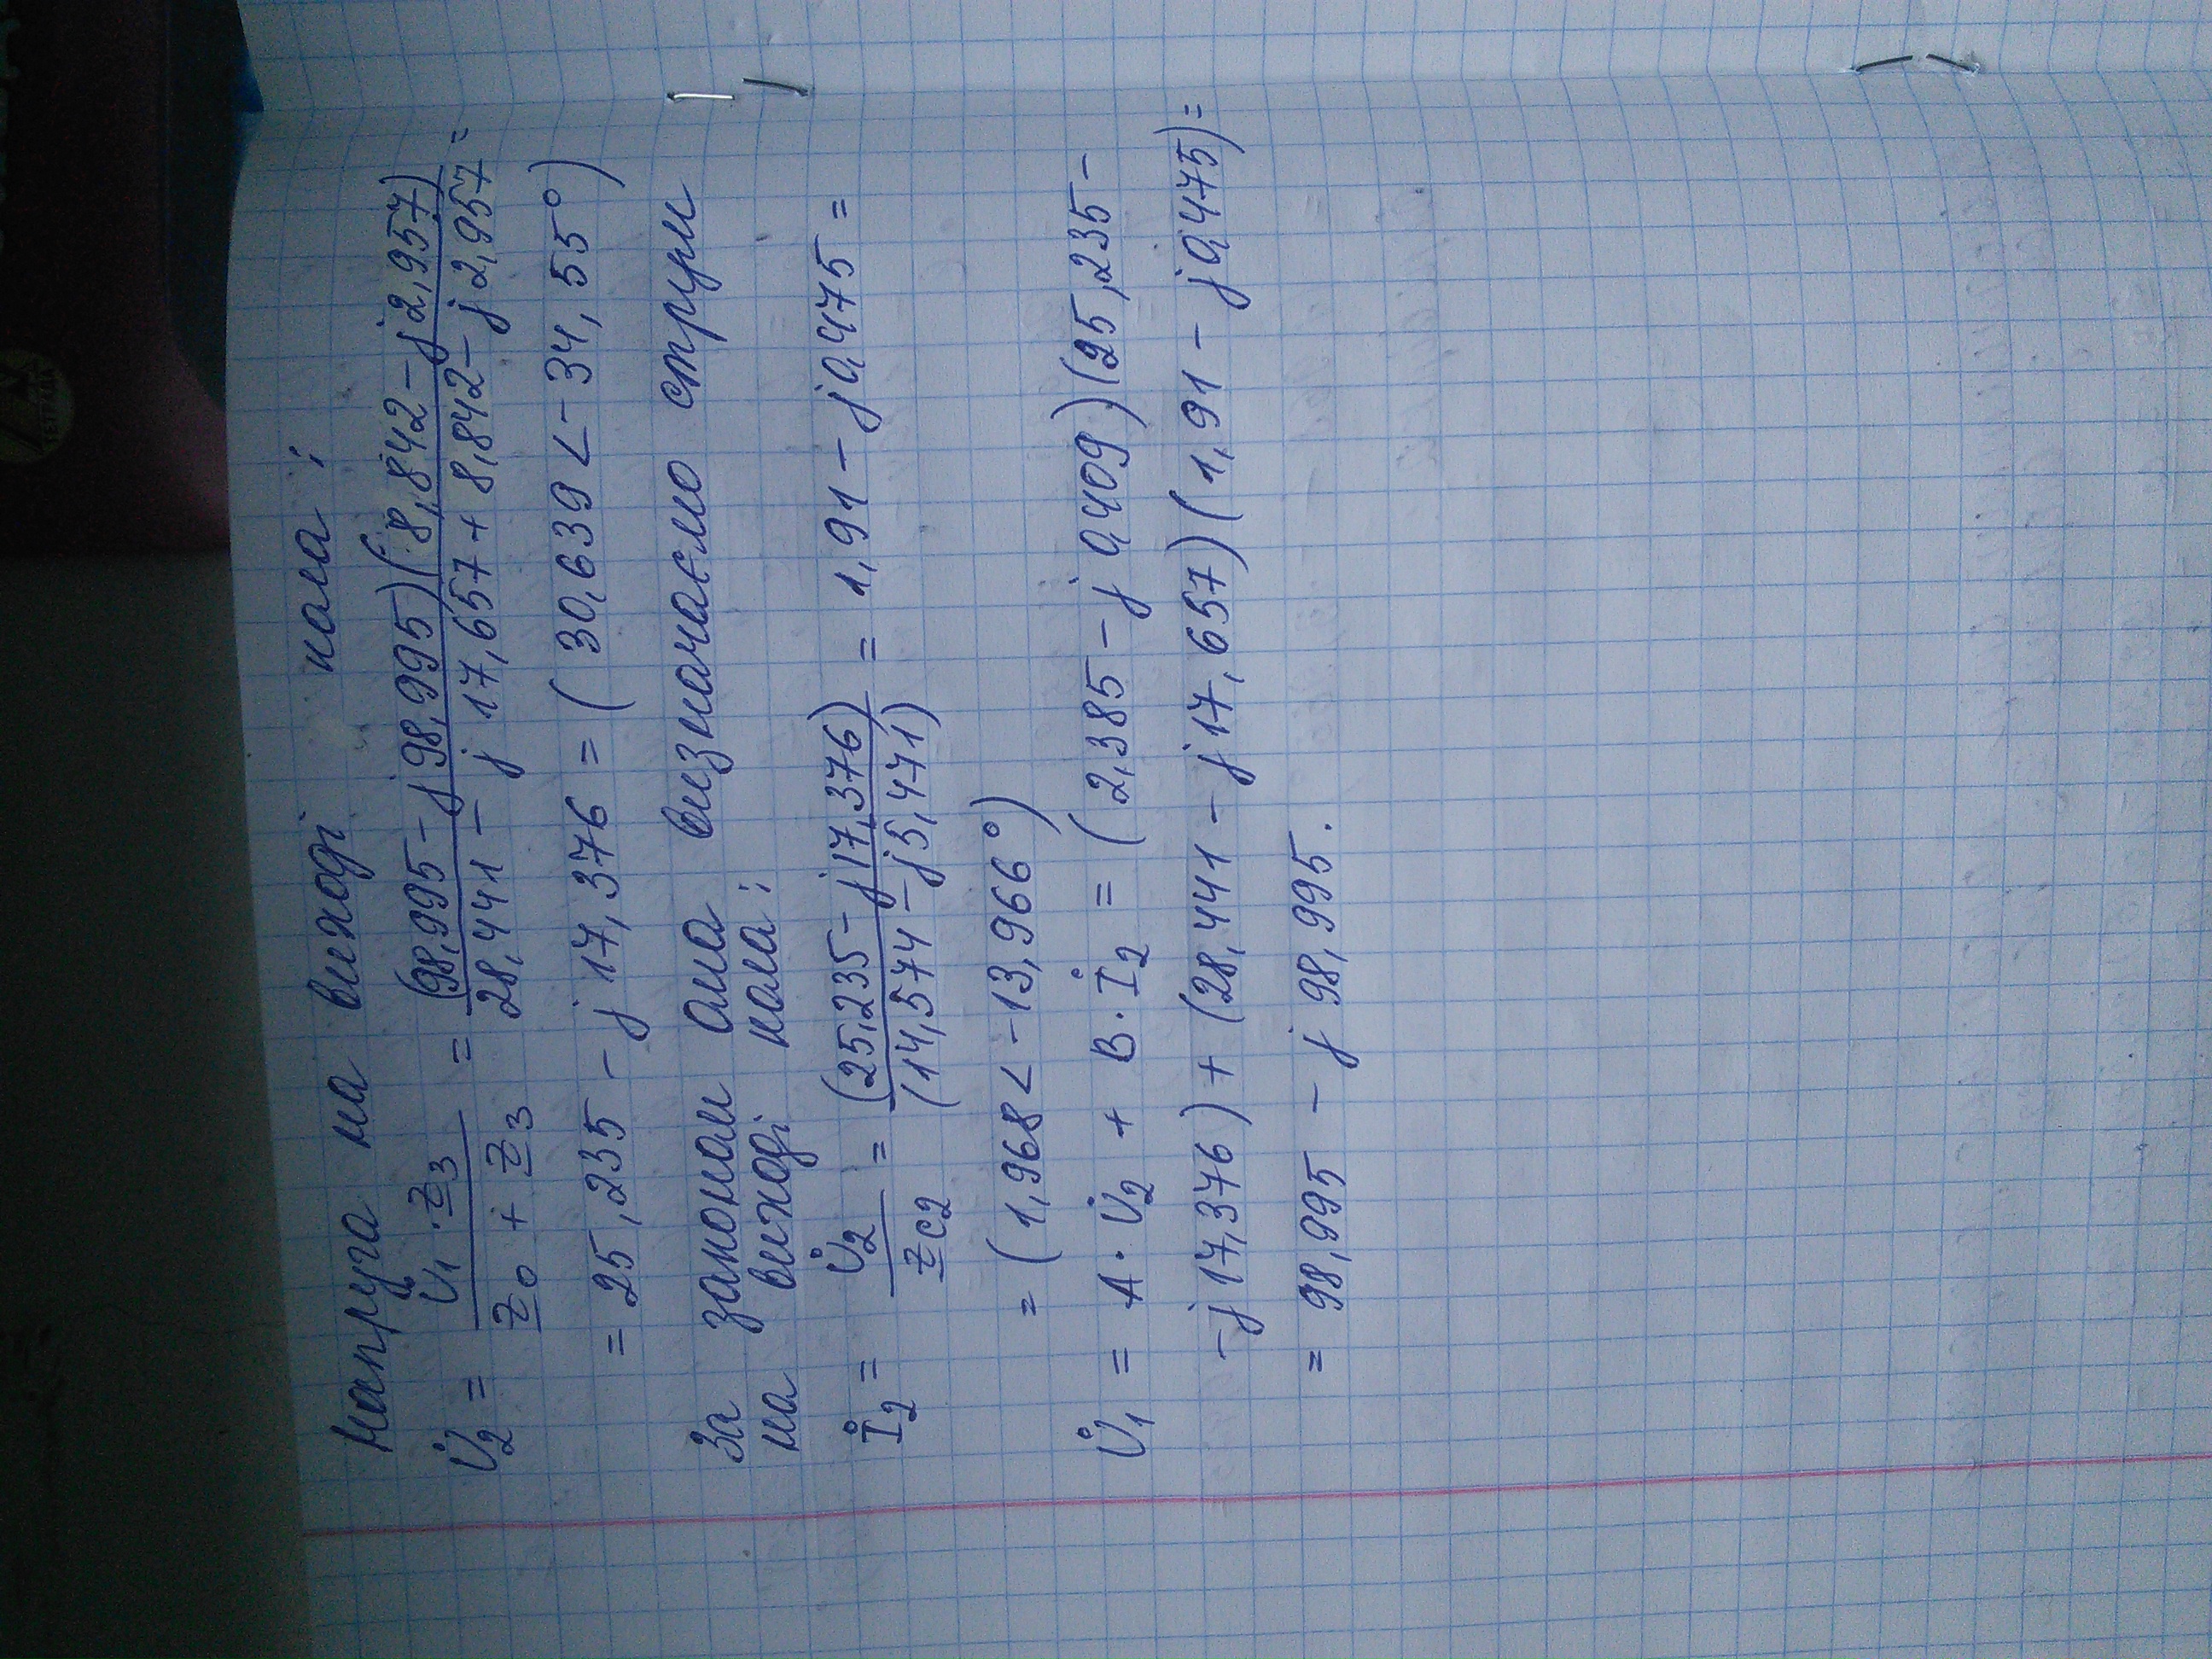 Напруга на виході кола:
U̇₂ = U̇₁·z̲₃ / z̲₀ + z̲₃ = (98,995 - j98,995)(8,842 - j2,957) / 28,441 - j17,657 + 8,842 - j2,957 =
= 25,235 - j17,376 = (30,639 ∠ -34,55°)
За законом ома визначаємо струм
на виході кола:
İ₂ = U̇₂ / z̲c₂ = (25,235 - j17,376) / (14,574 - j5,471) = 1,91 - j0,475 =
= (1,968 ∠ -13,966°)
U̇₁ = A·U̇₂ + B·İ₂ = (2,385 - j0,409)(25,235 -
- j17,376) + (28,441 - j17,657)(1,91 - j0,475) =
= 98,995 - j98,995.